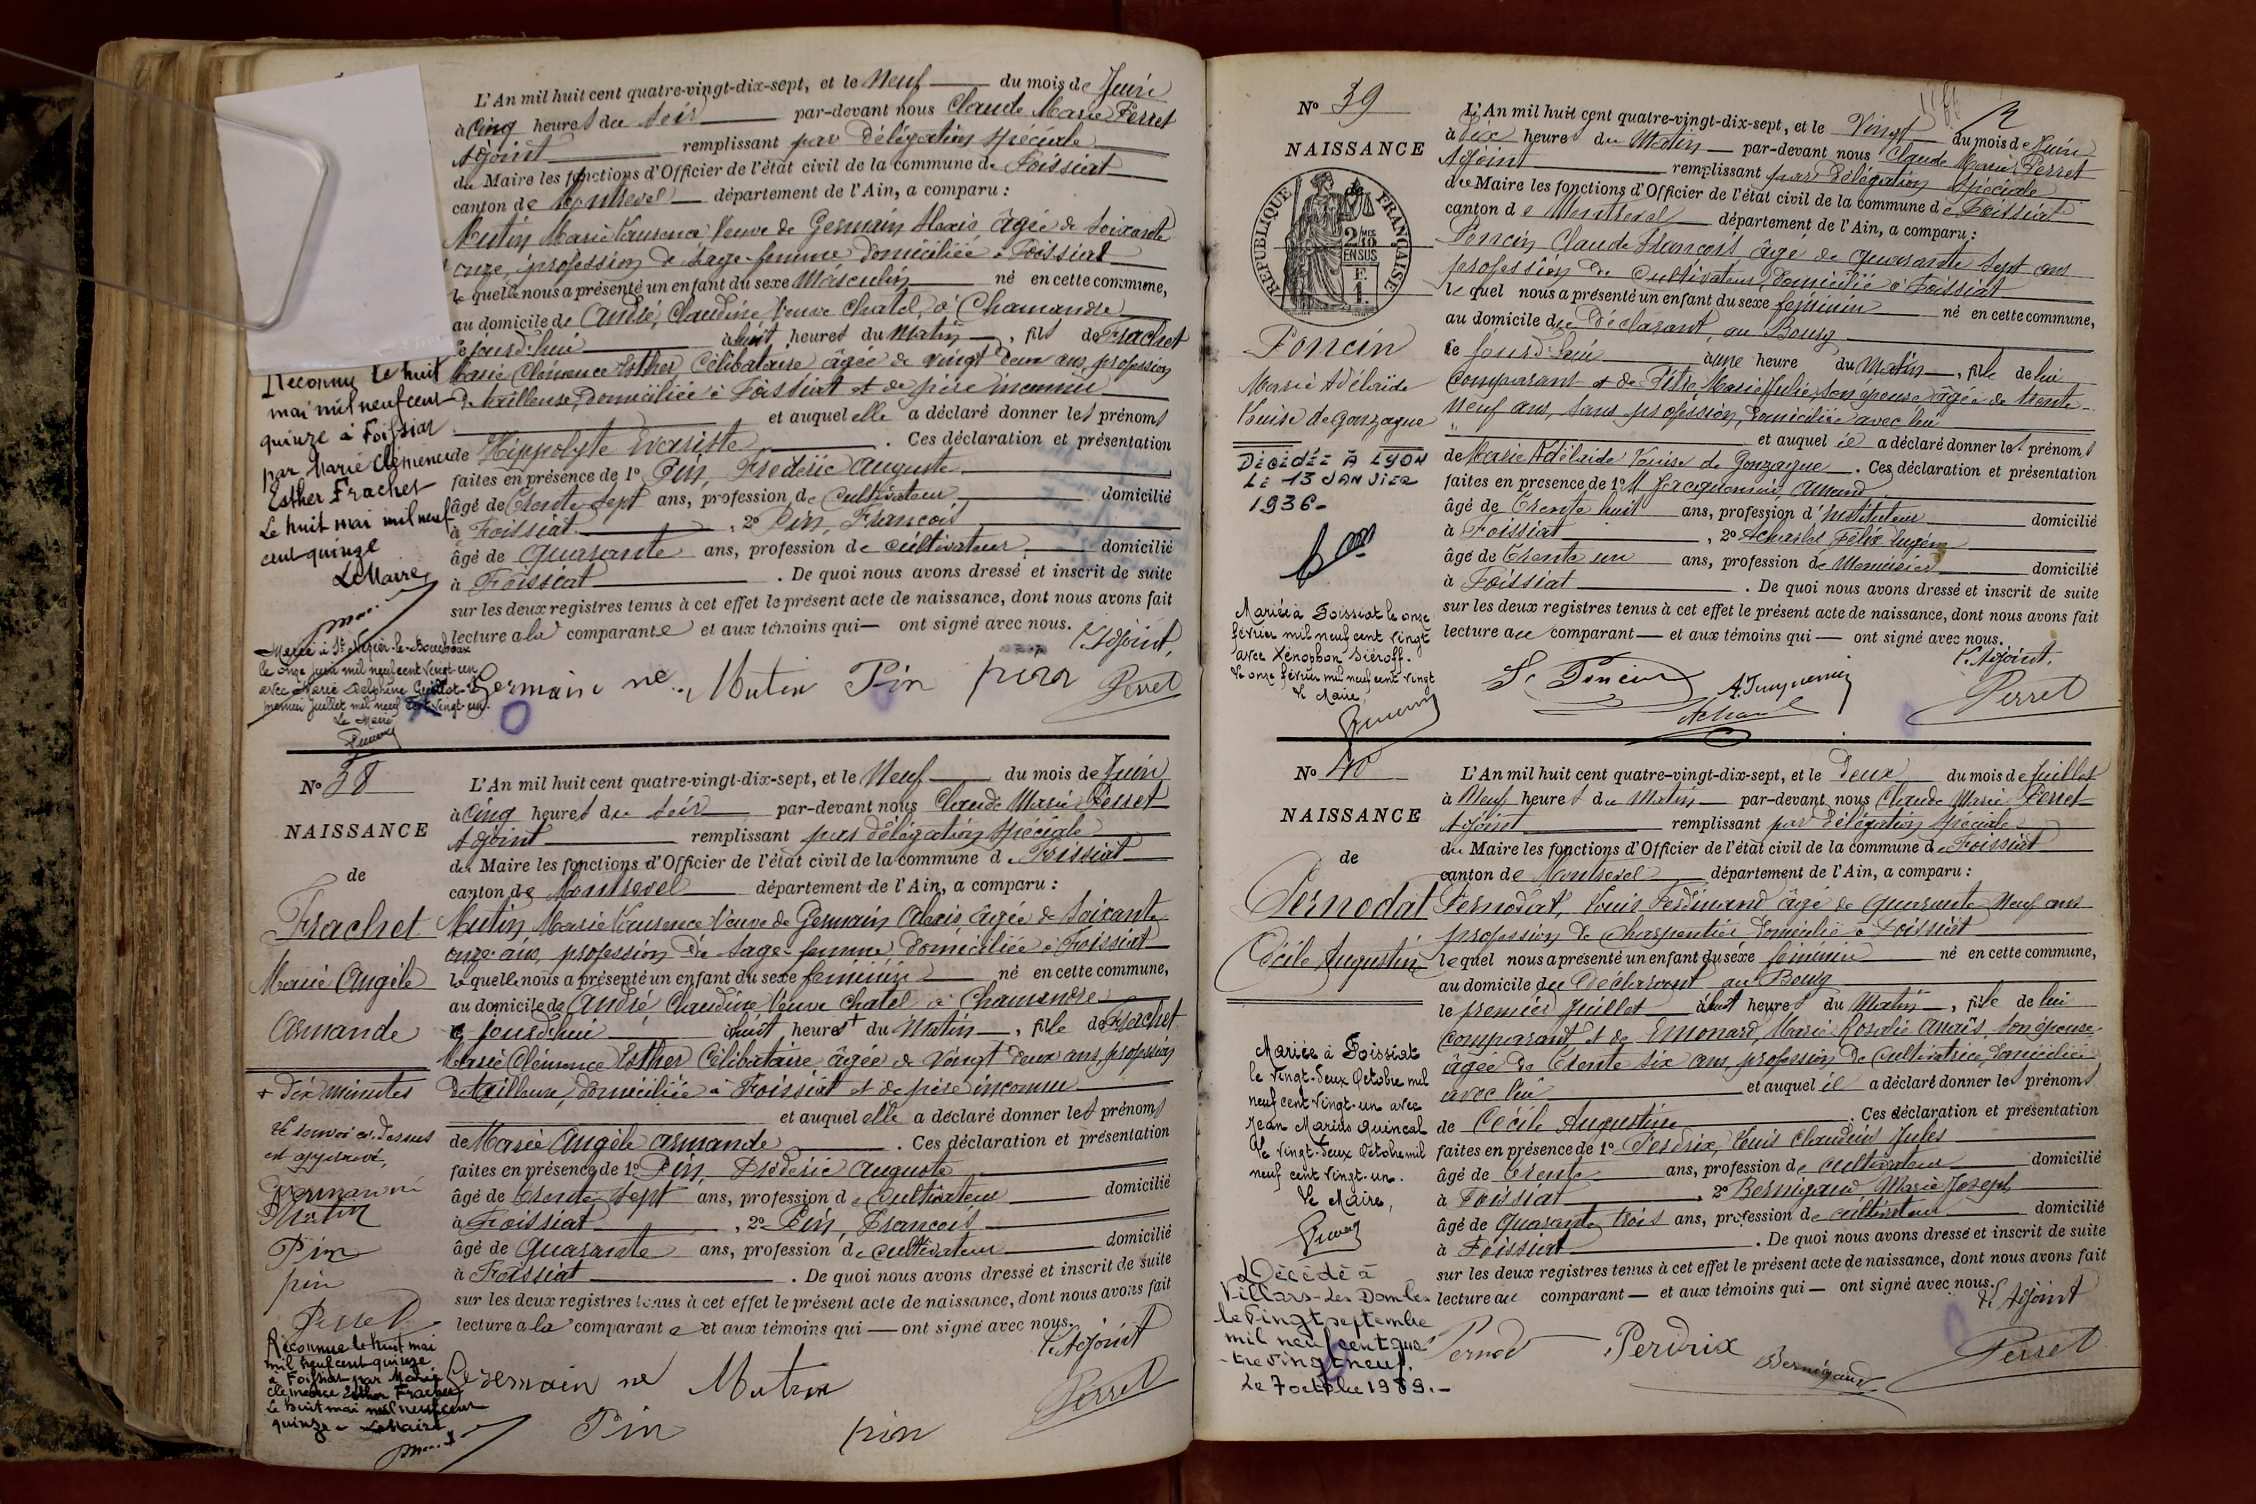 L'An mil huit cent quatre-vingt-dix-sept, et le Neuf du mois de Juin
à Cinq heures du soir par-devant nous Claude Marie Perret
Adjoint remplissant par délégation spéciale
du Maire les fonctions d'Officier de l'état civil de la commune de Foissiat
canton de Montrevel département de l'Ain, a comparu :
Mutin Marie Laurence Veuve de Germain Alexis âgée de soixante
onze, profession de sage-femme domiciliée à Foissiat
le quelle nous a présenté un enfant du sexe Masculin né en cette commune,
au domicile de André, Claudine Veuve Chatel, à Chamandre
le jourd'hui à huit heures du matin, fils de Frachet
Marie Clémence Esther Célibataire âgée de vingt deux ans, profession
de tailleuse, domiciliée à Foissiat et de père inconnu
et auquel elle a déclaré donner les prénoms
de Hippolyte Evariste. Ces déclaration et présentation
faites en présence de 1° Pin, Frédéric Auguste
âgé de Trente sept ans, profession de Cultivateur domicilié
à Foissiat, 2° Pin, François
âgé de Quarante ans, profession de cultivateur domicilié
à Foissiat. De quoi nous avons dressé et inscrit de suite
sur les deux registres tenus à cet effet le présent acte de naissance, dont nous avons fait
lecture a la comparante et aux témoins qui — ont signé avec nous.
L'Adjoint,
Germain né Mutin Pin pin Perret
Reconnu le huit
mai mil neuf cent
quinze à Foissiat
par Marie Clémence
Esther Frachet
Le huit mai mil neuf
cent quinze
Le Maire
Marié à St Nizier-le-Bouchoux
le onze juin mil neuf cent vingt-un
avec Marie Delphine Guillot. Le
premier Juillet mil neuf cent vingt-un.
Le Maire
N° 38
NAISSANCE
de
Frachet
Marie Angèle
Armande
+ dix minutes
Le renvoi ci-dessus
est approuvé,
Germain né
Mutin
Pin
pin
Perret
Reconnue le huit mai
mil neuf cent quinze
à Foissiat par Marie
Clémence Esther Frachet
Le huit mai mil neuf cent
quinze Le Maire
L'An mil huit cent quatre-vingt-dix-sept, et le Neuf du mois de Juin
à Cinq heures du soir par-devant nous Claude Marie Perret
Adjoint remplissant par délégation spéciale
du Maire les fonctions d'Officier de l'état civil de la commune de Foissiat
canton de Montrevel département de l'Ain, a comparu :
Mutin Marie Laurence Veuve de Germain Alexis âgée de soixante
onze ans, profession de sage-femme domiciliée à Foissiat
le quelle nous a présenté un enfant du sexe féminin né en cette commune,
au domicile de André, Claudine Veuve Chatel à Chamandre
le jourd'hui à huit heures + du Matin, fille de Frachet
Marie Clémence Esther Célibataire âgée de vingt deux ans, profession
de tailleuse, domiciliée à Foissiat et de père inconnu
et auquel elle a déclaré donner les prénoms
de Marie Angèle Armande. Ces déclaration et présentation
faites en présence de 1° Pin, Frédéric Auguste
âgé de Trente sept ans, profession de Cultivateur domicilié
à Foissiat, 2° Pin, François
âgé de Quarante ans, profession de cultivateur domicilié
à Foissiat. De quoi nous avons dressé et inscrit de suite
sur les deux registres tenus à cet effet le présent acte de naissance, dont nous avons fait
lecture a la comparante et aux témoins qui — ont signé avec nous.
L'Adjoint
Germain né Mutin Perret
Pin pin
N° 39
NAISSANCE
de
REPUBLIQUE FRANÇAISE
2/10 MES
EN SUS
F.
1.
Poncin
Marie Adélaïde
Louise de Gonzague
DÉCÉDÉE À LYON
LE 13 JANVIER
1936-
Mariés à Foissiat le onze
février mil neuf cent vingt
avec Xénophon Siéroff.
Le onze février mil neuf cent vingt
Le Maire,
L'An mil huit cent quatre-vingt-dix-sept, et le Vingt du mois de Juin
à dix heures du Matin par-devant nous Claude Marie Perret
Adjoint remplissant par délégation spéciale
du Maire les fonctions d'Officier de l'état civil de la commune de Foissiat
canton de Montrevel département de l'Ain, a comparu :
Poncin Claude François âgé de quarante sept ans
profession de cultivateur, domicilié à Foissiat
le quel nous a présenté un enfant du sexe féminin né en cette commune,
au domicile du déclarant, au Bourg
le jourd'hui à une heure du Matin, fille de lui
Comparant et de Pitre, Marie Julie, son épouse âgée de trente
neuf ans, sans profession, domiciliée avec lui
et auquel il a déclaré donner les prénoms
de Marie Adélaïde Louise de Gonzague. Ces déclaration et présentation
faites en présence de 1° M Jacquemin, Amand
âgé de Trente huit ans, profession d'Instituteur domicilié
à Foissiat, 2° Achard Félix Eugène
âgé de Trente un ans, profession de Menuisier domicilié
à Foissiat. De quoi nous avons dressé et inscrit de suite
sur les deux registres tenus à cet effet le présent acte de naissance, dont nous avons fait
lecture au comparant — et aux témoins qui — ont signé avec nous.
L'Adjoint,
Poncin A. Jacquemin Achard Perret
N° 40
NAISSANCE
de
Pernodat
Cécile Augustine
Mariée à Foissiat
le vingt-deux Octobre mil
neuf cent vingt-un avec
Jean Marius Quincal
Le vingt-deux Octobre mil
neuf cent vingt-un.
Le Maire,
Décédé à
Villars-Les Dombes
le vingt septembre
mil neuf cent qua-
-tre vingt neuf.
Le 7 octobre 1989.-
L'An mil huit cent quatre-vingt-dix-sept, et le Deux du mois de Juillet
à Neuf heures du Matin par-devant nous Claude Marie Perret
Adjoint remplissant par délégation spéciale
du Maire les fonctions d'Officier de l'état civil de la commune de Foissiat
canton de Montrevel département de l'Ain, a comparu :
Pernodat, Louis Ferdinand âgé de quarante Neuf ans
profession de charpentier domicilié à Foissiat
le quel nous a présenté un enfant du sexe féminin né en cette commune,
au domicile du Déclarant au Bourg
le premier Juillet à huit heures du Matin, fille de lui
comparant et de Emonard, Marie Rosalie Anaïs, son épouse
âgée de trente six ans, profession de cultivatrice, domiciliée
avec lui et auquel il a déclaré donner les prénoms
de Cécile Augustine. Ces déclaration et présentation
faites en présence de 1° Perdrix, Louis Claudius Jules
âgé de Trente ans, profession de cultivateur domicilié
à Foissiat, 2° Bernigaud Marie Joseph
âgé de Quarante trois ans, profession de cultivateur domicilié
à Foissiat. De quoi nous avons dressé et inscrit de suite
sur les deux registres tenus à cet effet le présent acte de naissance, dont nous avons fait
lecture au comparant — et aux témoins qui — ont signé avec nous.
L'Adjoint
Perdrix Bernigaud Perret